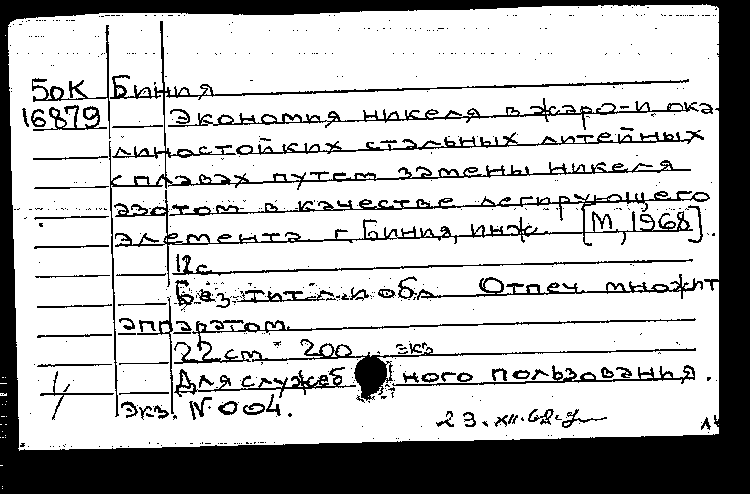 БОК Биния
16879 Экономия никеля в жаро- и ока-
линостойких стальных литейных
сплавах путем замены никеля
азотом в качестве легирующего
элемента г. Биния, инж. [М, 1968].
12 с.
Без тит. л. и обл. Отпеч. множит
аппаратом.
22 см. 200 экз
Для служебного пользования.
Экз. № 004.
23.XII.68.